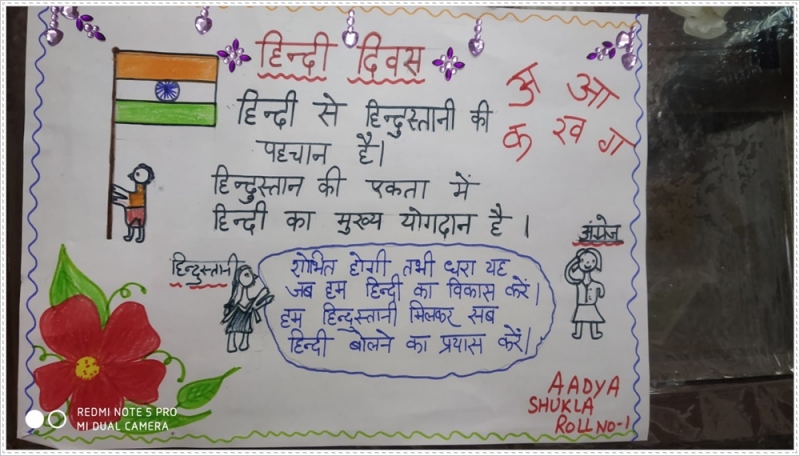 हिन्दी दिवस
अ आ
क ख ग
हिन्दी से हिन्दुस्तानी की
पहचान है।
हिन्दुस्तान की एकता में
हिन्दी का मुख्य योगदान है ।
हिन्दुस्तानी
अंग्रेज
शोभित होगी तभी धरा यह
जब हम हिन्दी का विकास करें।
हम हिन्दुस्तानी मिलकर सब
हिन्दी बोलने का प्रयास करें।
AADYA
SHUKLA
ROLL NO-1
REDMI NOTE 5 PRO
MI DUAL CAMERA